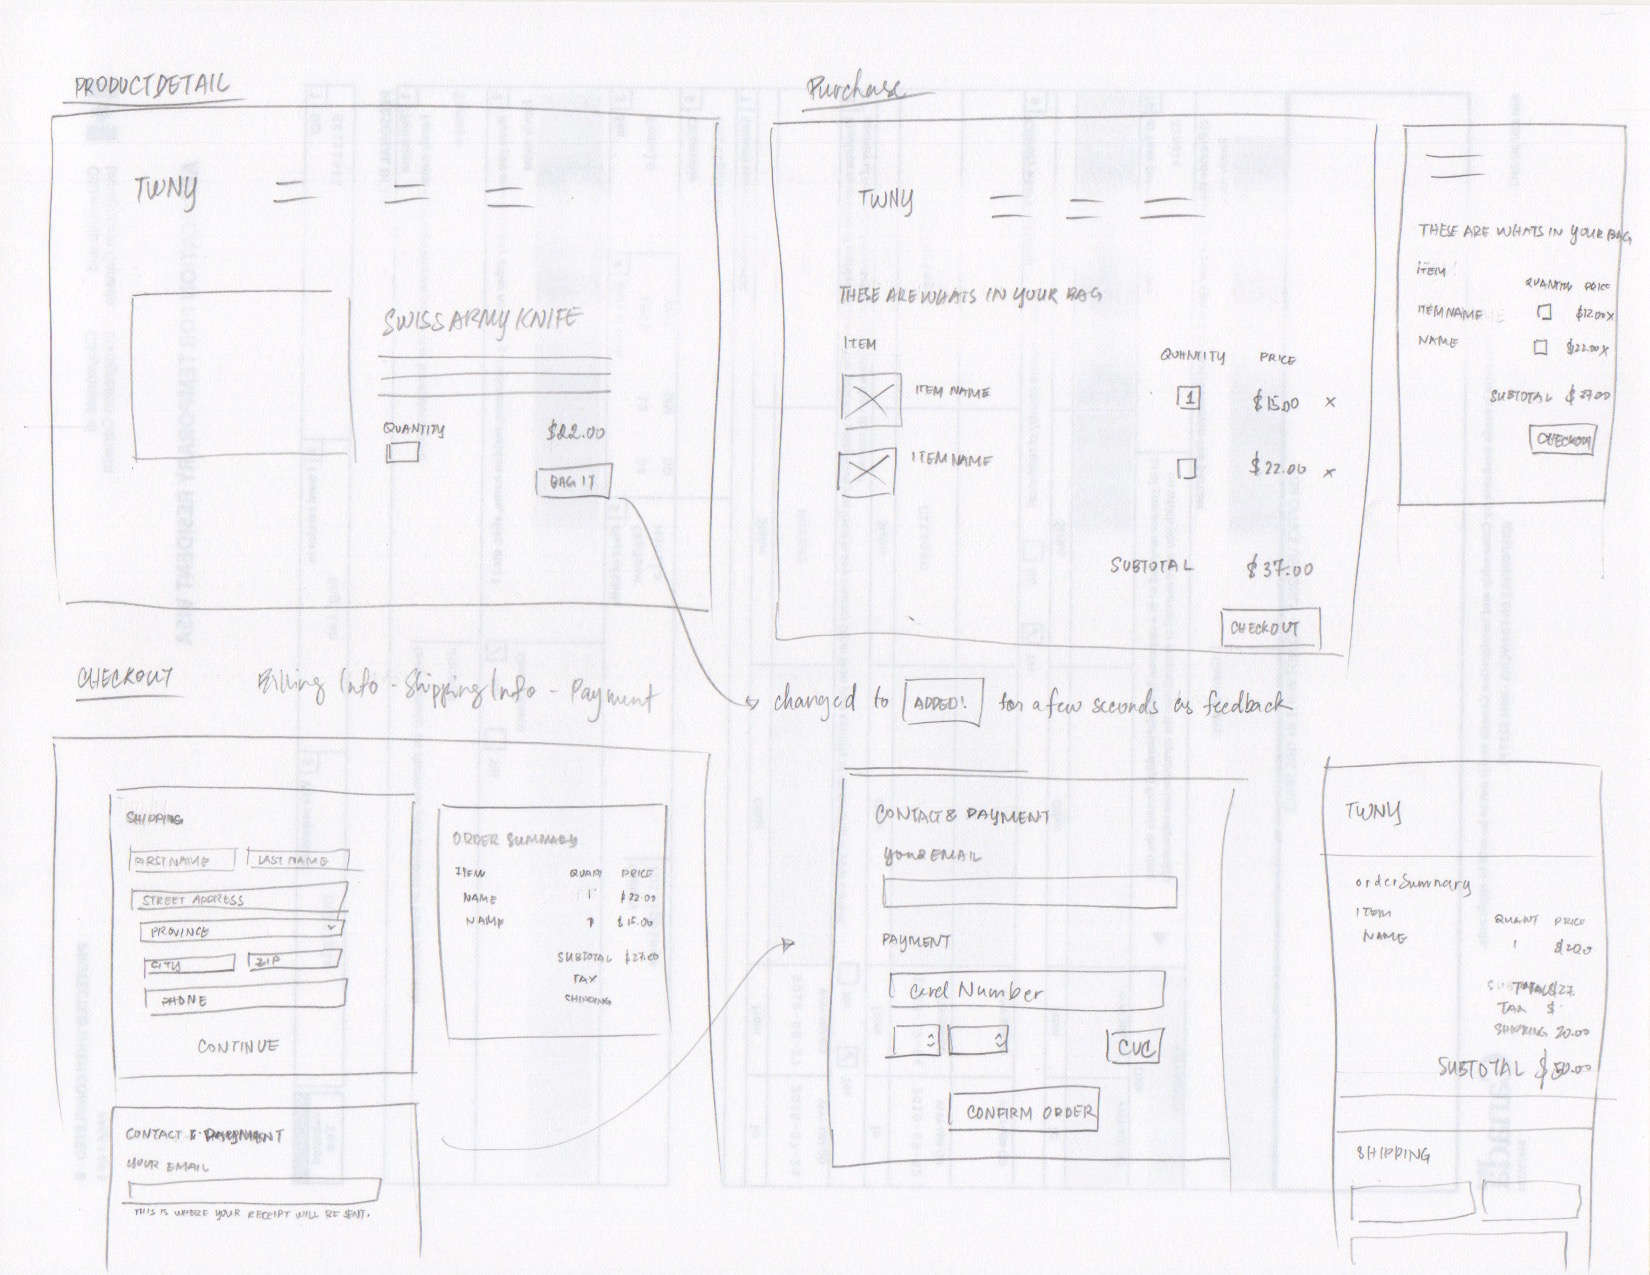 PRODUCT DETAIL
TWNY
SWISS ARMY KNIFE
QUANTITY
$22.00
BAG IT
Purchase
TWNY
THESE ARE WHATS IN YOUR BAG
ITEM
QUANTITY PRICE
ITEM NAME 1 $15.00 x
ITEM NAME $22.00 x
SUBTOTAL $37.00
CHECKOUT
THESE ARE WHATS IN YOUR BAG
ITEM
QUANTITY PRICE
ITEM NAME $12.00 x
NAME $22.00 x
SUBTOTAL $37.00
CHECKOUT
changed to ADDED! for a few seconds as feedback
CHECKOUT Billing Info - Shipping Info - Payment
SHIPPING
FIRST NAME LAST NAME
STREET ADDRESS
PROVINCE
CITY ZIP
PHONE
CONTINUE
ORDER SUMMARY
ITEM QUANT PRICE
NAME 1 $22.00
NAME 1 $15.00
SUBTOTAL $27.00
TAX
SHIPPING
CONTACT & PAYMENT
YOUR EMAIL
THIS IS WHERE YOUR RECEIPT WILL BE SENT.
CONTACT & PAYMENT
YOUR EMAIL
PAYMENT
Card Number
CVC
CONFIRM ORDER
TWNY
order Summary
ITEM
QUANT PRICE
NAME 1
TAX $
SHIPPING 20.00
SUBTOTAL $50.00
SHIPPING